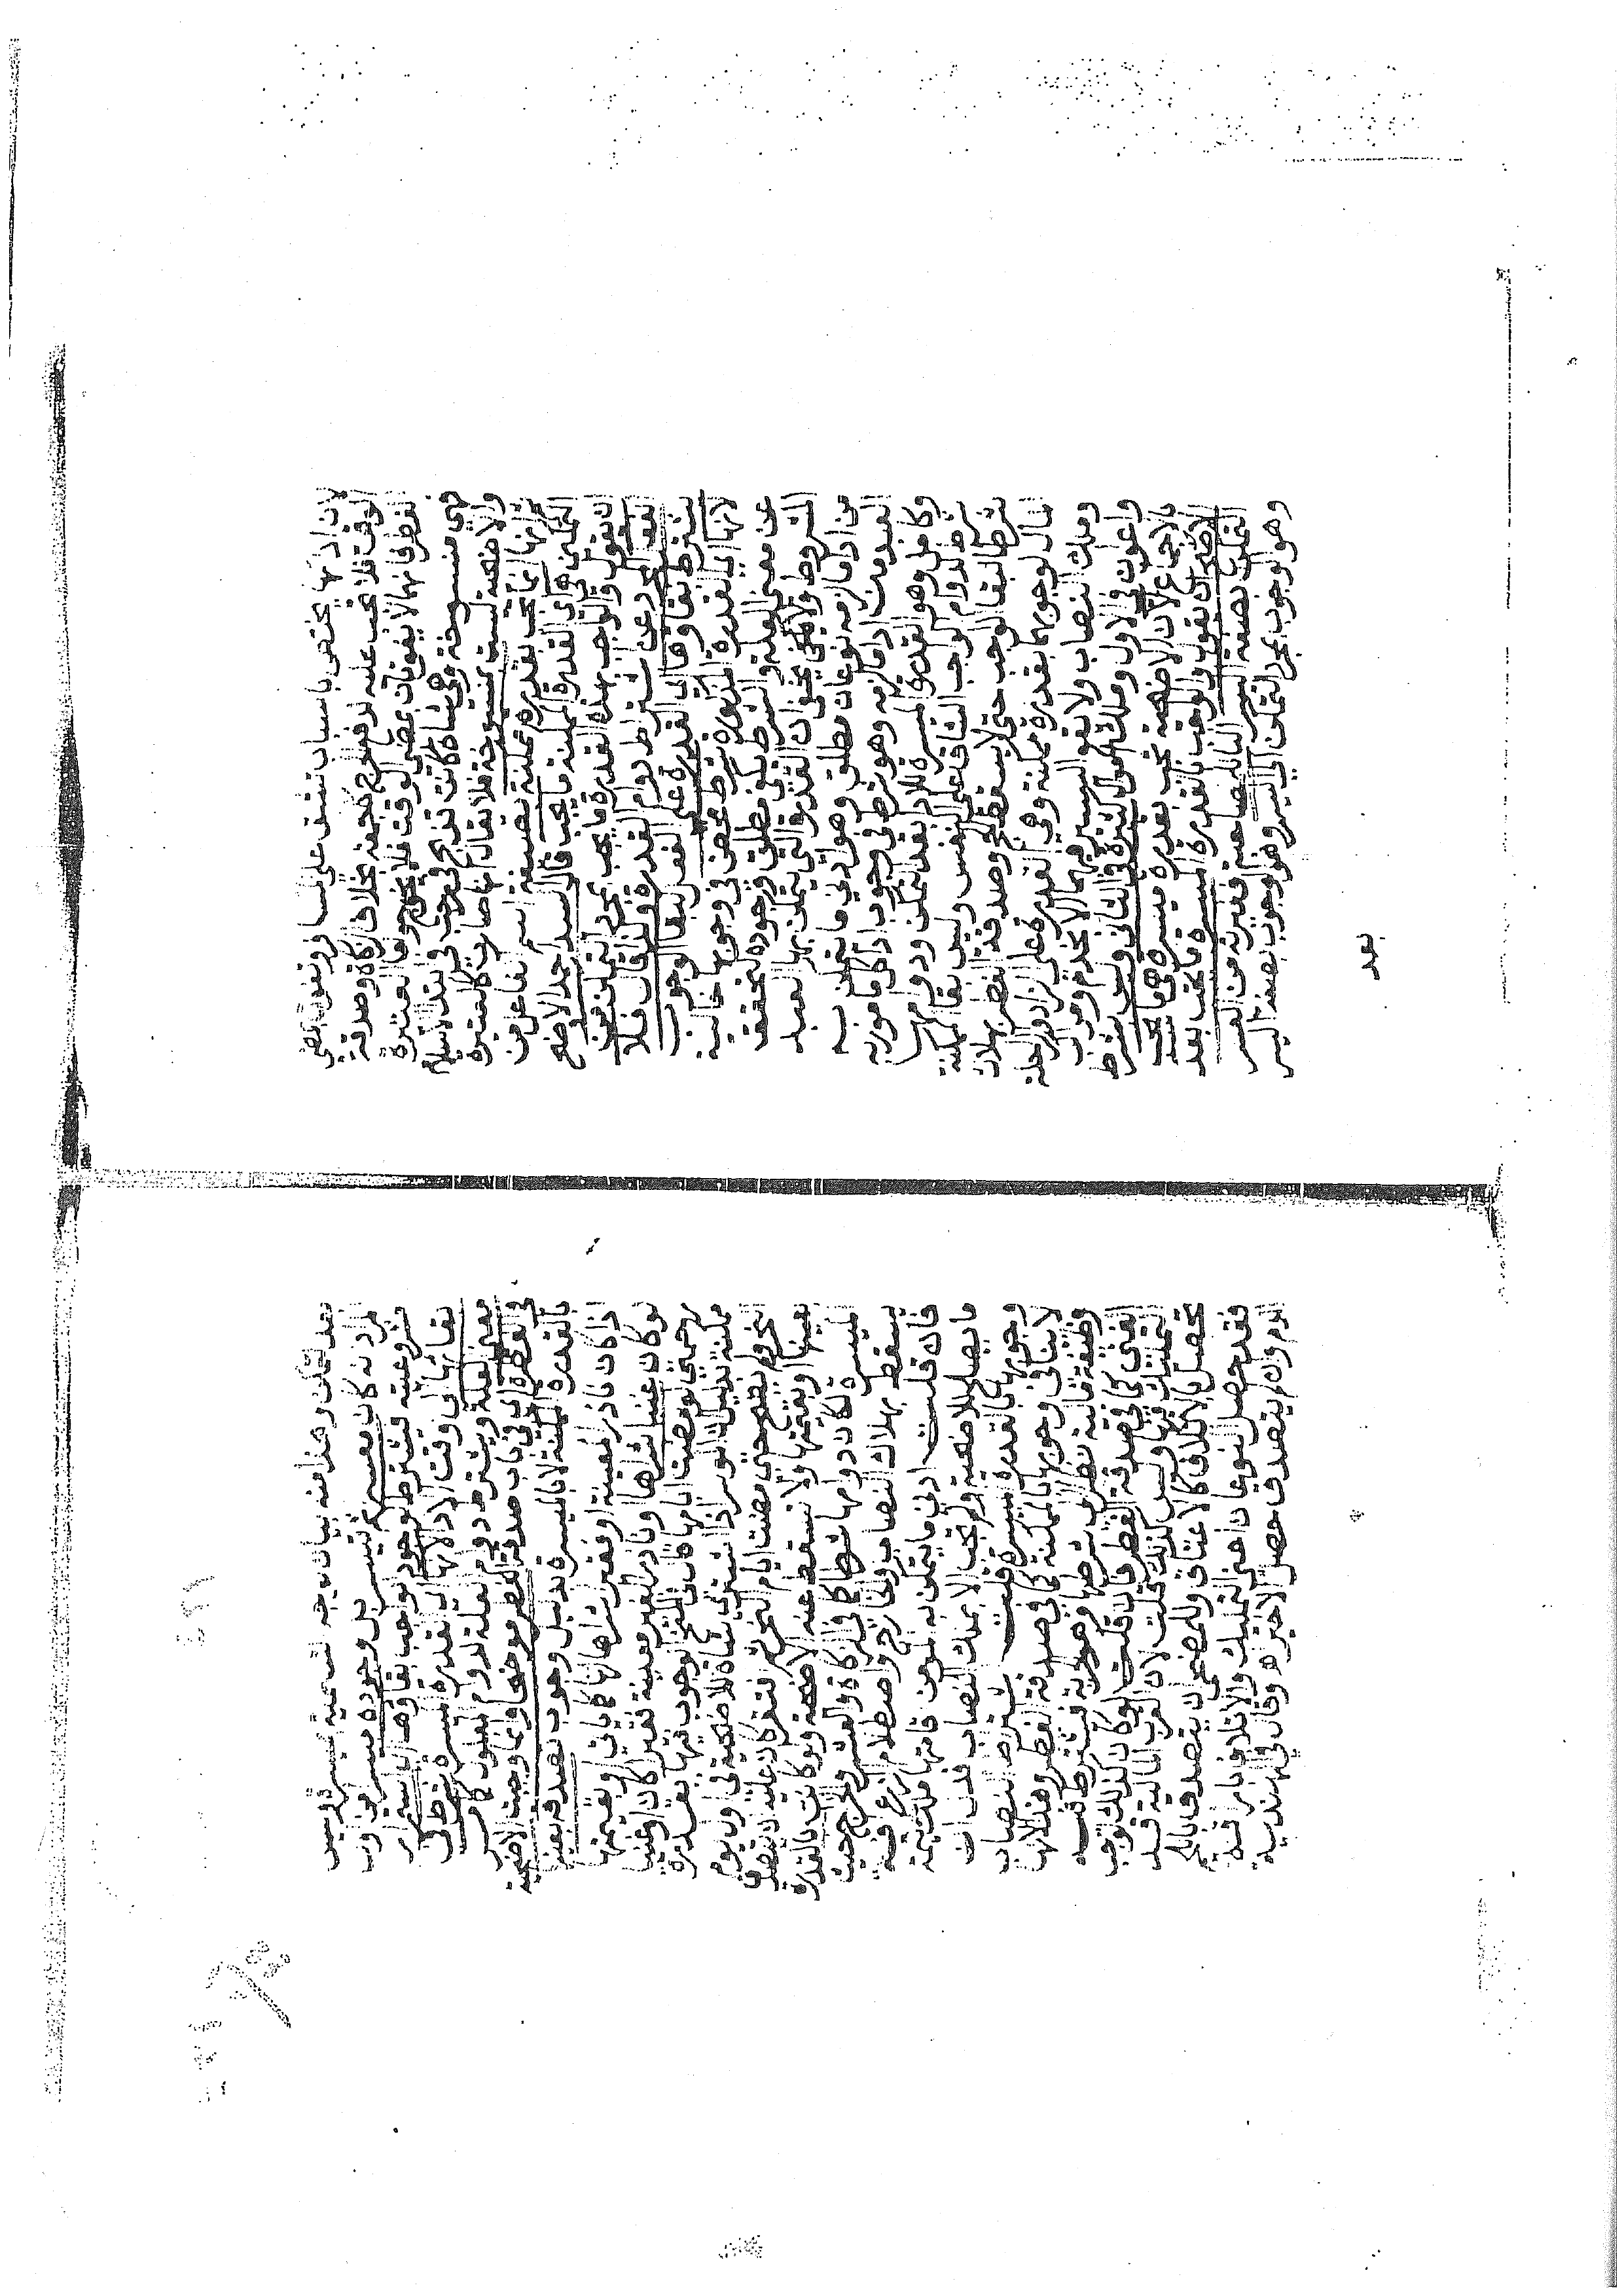 لان ادائها يختص باسباب تشق على المسافر وتفوت بمضي
الوقت فلا تجب عليه لدفع الحرج كالجمعة بخلاف الزكاة وصدقة
الفطر فانها لا يفوتان بمضي الوقت فلا يحرج واما العتيرة
فهي منسوخة وهي شاة كانت تذبح في رجب في ابتداء الاسلام
والاضحية ليست بمنسوخة فلا يقال انها صارت كالعتيرة
ثم انها انما تجب بقدرة ممكنة بصيغة اسم الفاعل من
التمكين هي اي القدرة الممكنة ما يجب قال السيد احمد الاوضح
ان يقول والواجب بهذه القدرة ما يجب بمجرد التمكن من
الفعل مجرد عن اشتراط دوام القدرة ولذا قال فلا
يشترط بقاؤها اي القدرة على الفعل لبقا الوجوب
لانها اي القدرة المذكورة شرط محض في وجوبها خالية
عن معنى العلة والشرط يكفي مطلق وجوده لتحقق
المشروط ولا يخفى ان القدرة التي يتمكن بها العبد
من اداء ما لزمه نوعان مطلق وهو ادنى ما يتمكن به
العبد من اداء ما لزمه وهو شرط في وجوب اداء كل مامور به
وكامل وهو القدرة الميسرة للاداء بعد التمكن ودوامها
شرط لدوام الواجب الشاق على النفس وليس بقا الممكنة
شرطا لبقا الوجب حتى لا يسقط الحج وصدقة الفطر بهلاك
المال لوجوبهما بقدرة ممكنة وهي القدرة على الزاد والراحلة
وملك النصاب ولا يقع اليسر فيهما الا بخدم ومراكب
واعوان في الاول وملك اموال كثيرة في الثاني وليس بشرط
بالاجماع لان الاضحية تجب بقدرة ميسرة هي ما يجب
الاظهر ان يقول والواجب بالقدرة الميسرة ما يجب بعد
التمكن بصفة اليسر الباء للمصاحبة فغيرته من العسر
وهو الوجوب بمجرد التمكن الى اليسر وهو الوجوب بصفة اليسر
بعد
بعد التمكن وهذا منه بيان وجه تسميته ميسرة وليس
المراد انه كان معسرا ثم تيسر بل وجوده ميسر من اول
شروعيته فيشترط لوجود الواجب بقاؤها اي استمرار
بقائها الى وقت الاداء لانها اي القدرة الميسرة شرط في
معنى العلة ويشترط دوام العلة لدوام المعلول كما مر
في الفطرة اي في باب صدقة الفطر موضحا وانما وجبت الاضحية
بالقدرة الممكنة لا بالميسرة بدليل وجوب تصدقه بعينها
اذا كان ناذرا لمعينة او فقيرا شراها لها كما ياتي او بقيمتها
لو كان غنيا شراها او ناذر لغير معينة فقيرا كان او غنيا
لو مضت ايامها قال في المنح الوجوب فيها بقدرة
ممكنة بدليل ان الموسر اذا اشترى شاة للاضحية في اول يوم
النحر ولم يضح حتى مضت ايام النحر ثم افتقر كان عليه ان يتصدق
بعينها او بقيمتها ولا تسقط عنه الاضحية ولو كانت بالقدرة
الميسرة لكان دوامها شرطا كما في الزكاة والعشر والخراج حيث
تسقط بهلاك النصاب والخارج واصطلام الزرع آفة
فان قلت ادنى ما يتمكن به المرء من اقامتها ملك قيمة
ما يصلح للاضحية ولم تجب الا بملك النصاب فدل ان
وجوبها بالقدرة الميسرة قلت اشتراط النصاب
لا ينافي وجوبها بالممكنة كما في صدقة الفطر وهذا لانها
وظيفة مالية نظرا الى شرطها وهو الحرية فيشترط فيه
الغنى كما في صدقة الفطر فان قلت لو كان كذلك لوجب
التمليك فيها وليس كذلك قلت لان القرب المالية قد
تحصل بالاتلاف كالاعتاق والمضحي ان يتصدق باللحم
فقد حصل النوعان اعني التمليك والاتلاف باراقة
الدم وان لم يتصدق حصل الاخير اه وقال في الهندية